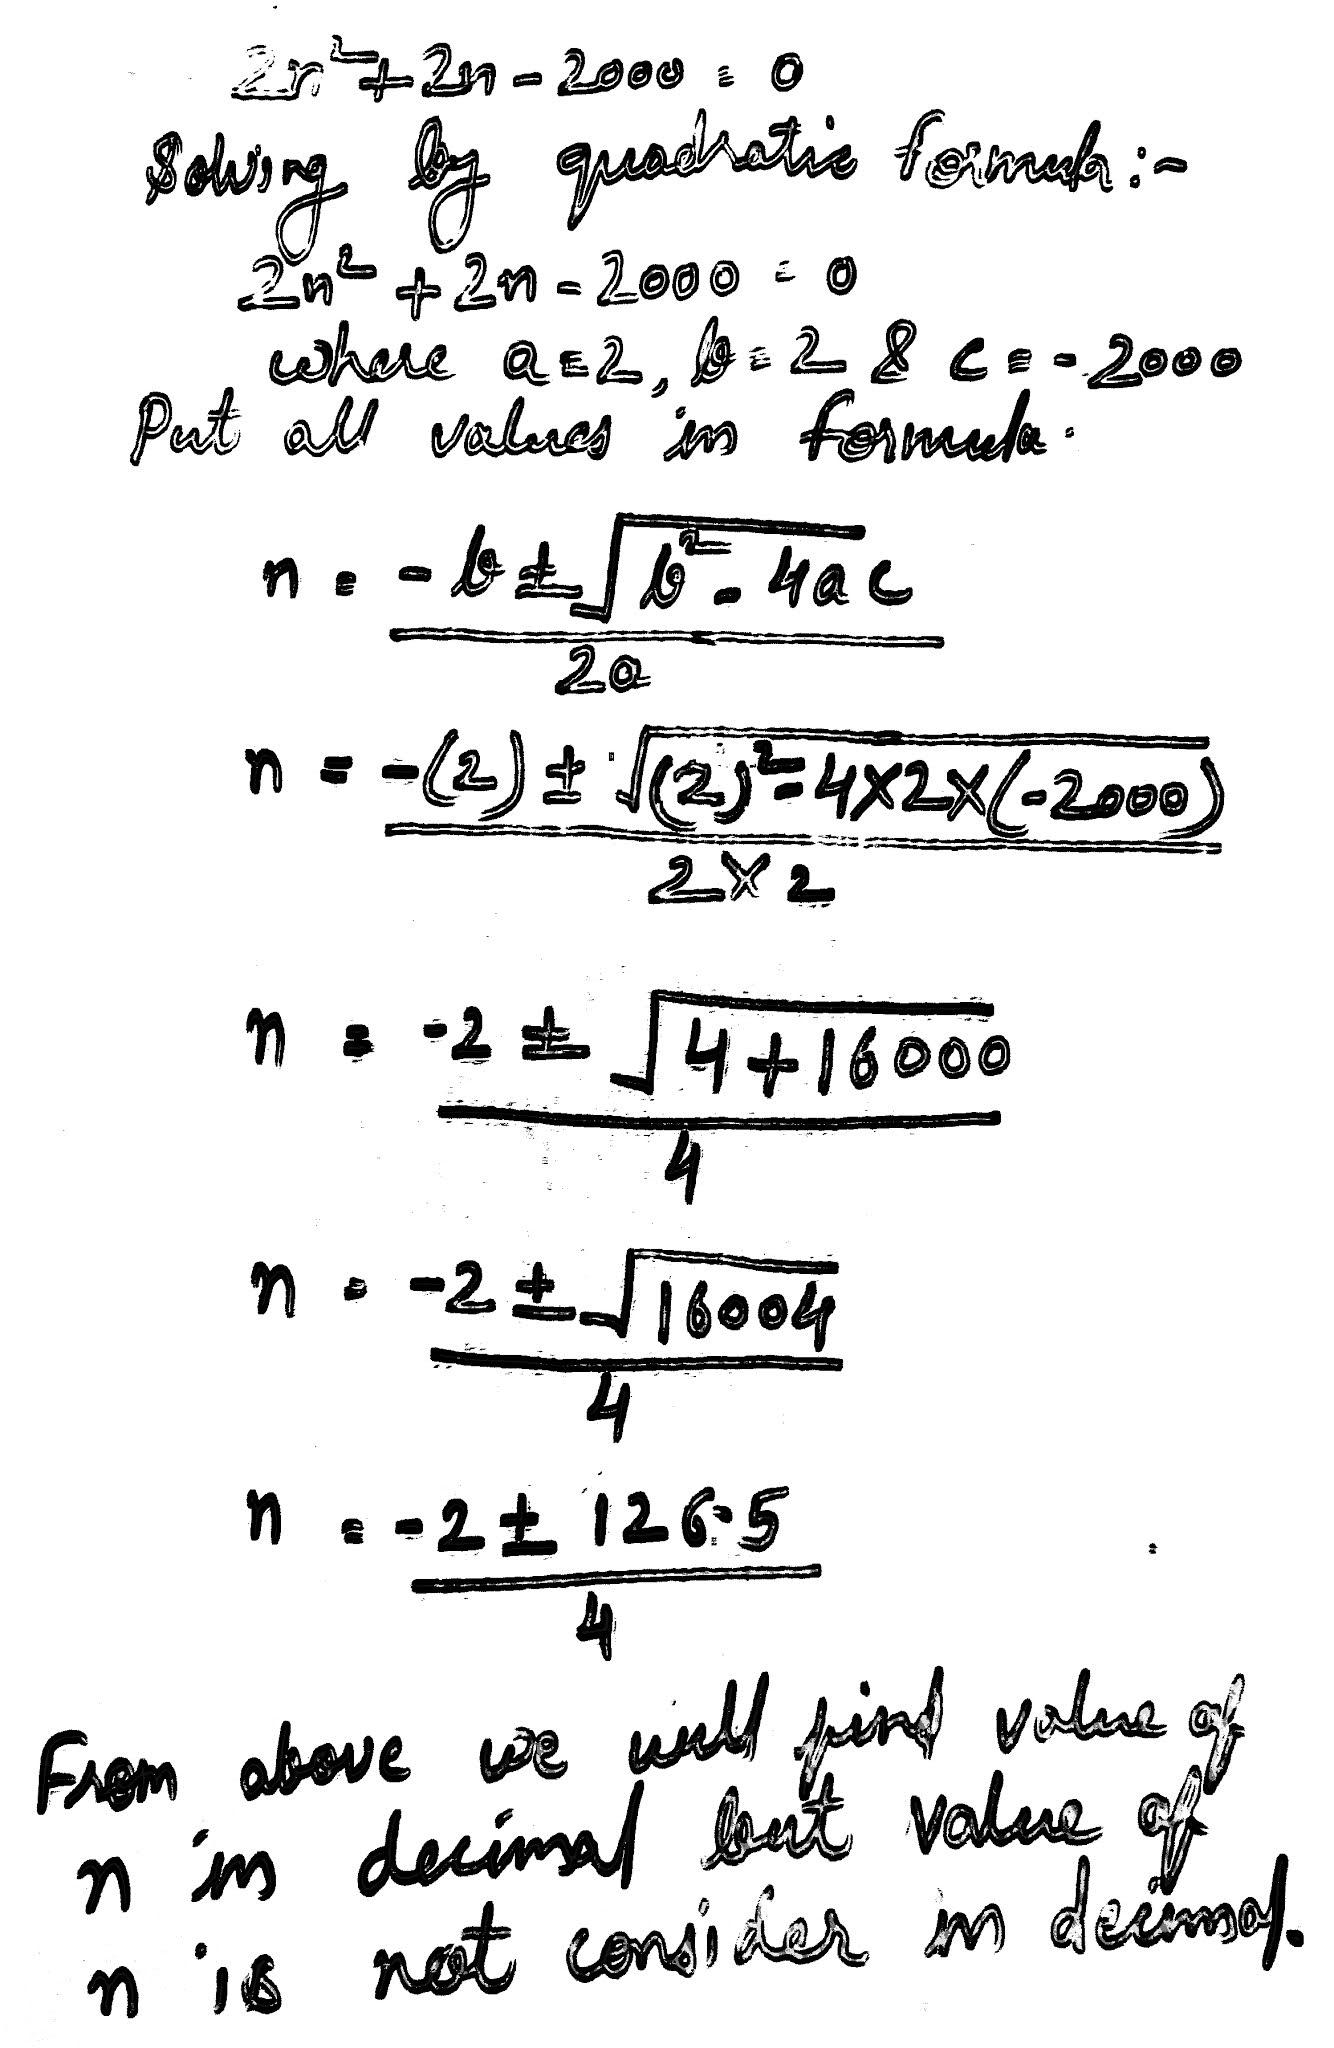 2n²+2n-2000 = 0
Solving by quadratic formula:-
2n² + 2n - 2000 = 0
where a=2, b=2 & c=-2000
Put all values in formula.
n = -b ± √b² - 4ac
2a
n = -(2) ± √(2)²-4×2×(-2000)
2×2
n = -2 ± √4+16000
4
n = -2 ± √16004
4
n = -2 ± 126.5
4
From above we will find value of
n in decimal but value of
n is not consider in decimal.